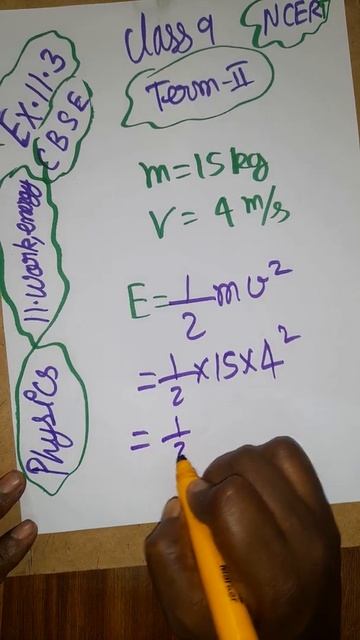 Class 9
NCERT
Term-II
Ex.11.3
CBSE
11.Work,energy
Physics
m=15kg
v=4 m/s
E=1/2 mv²
=1/2×15×4²
=1/2